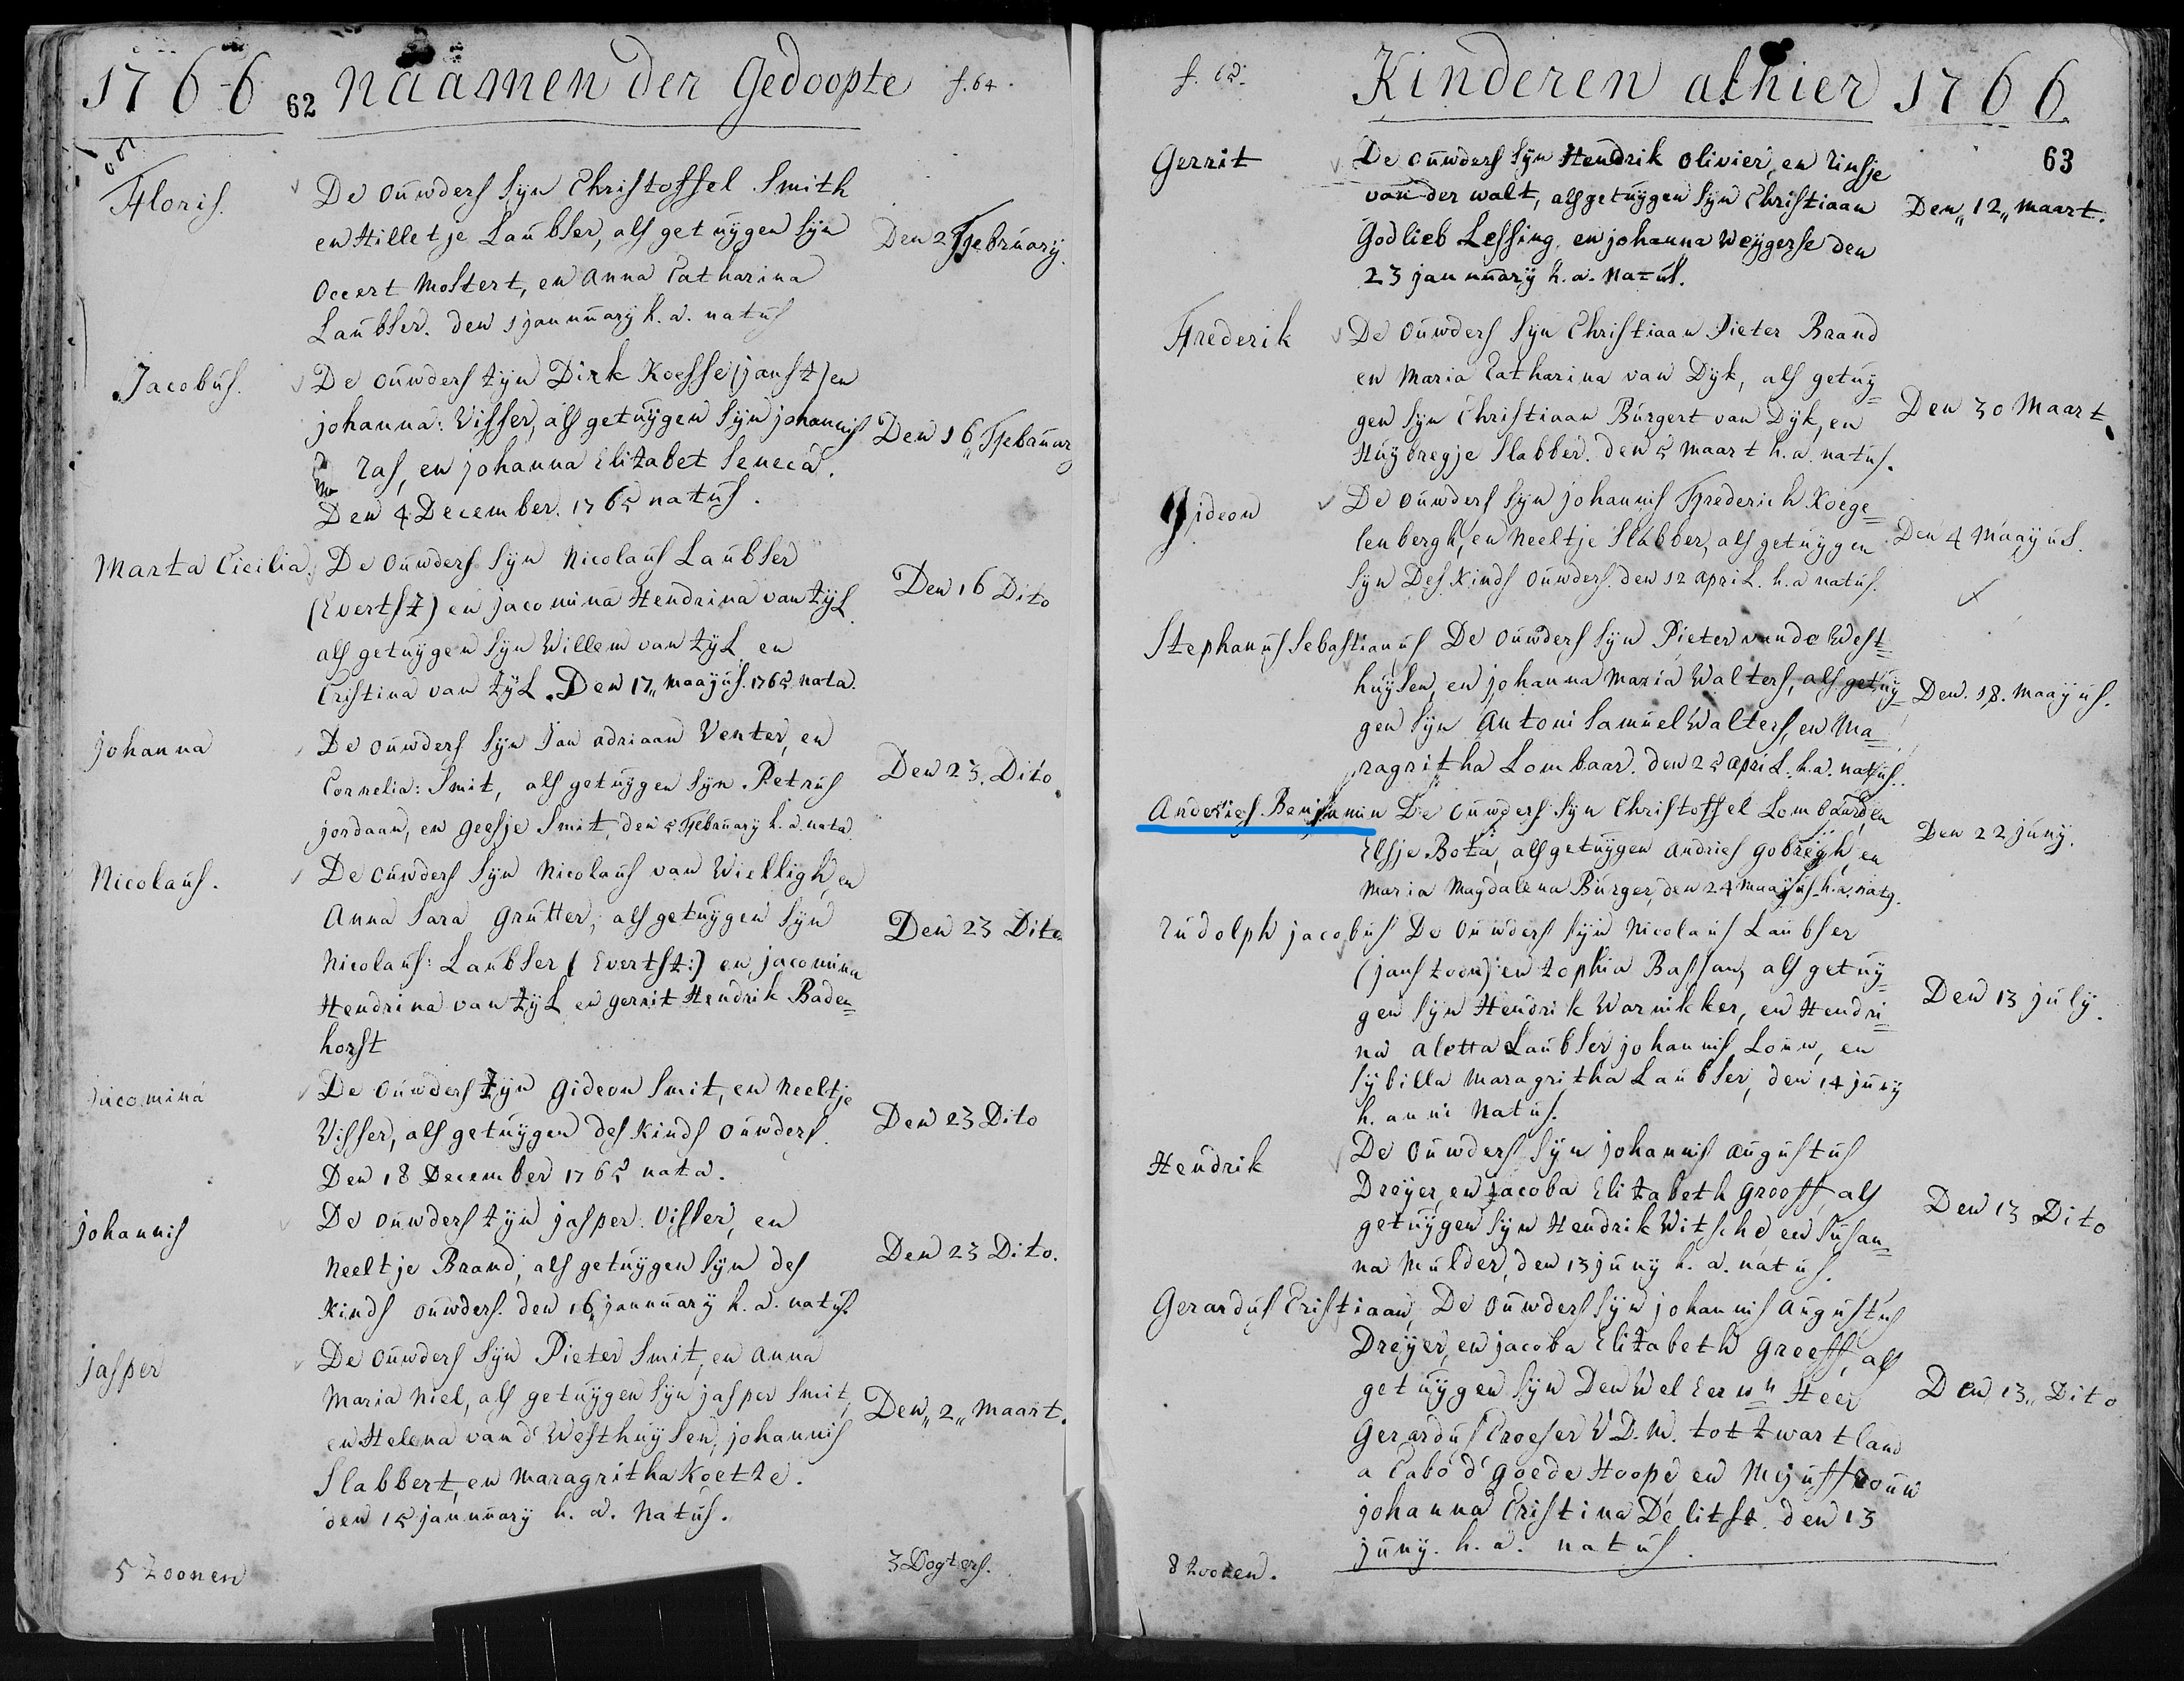 1766 62 naamen der Gedoopte f. 64.
Floris.
De ouwders syn Christoffel Smith
en Hilletje Laubser, als getuygen syn
Occert Mostert, en Anna Catharina
Laubser. den 1 jannuary h. a. natus
Den 2 February.
Jacobus.
De ouwders zyn Dirk Koesse (jansz) en
johanna: Visser, als getuygen syn johannis
Ras, en johanna Elizabet Seneca.
Den 4 December. 1765 natus.
Den 16 Febauary
Marta Cicilia.
De ouwders syn Nicolaus Laubser
(Evertsz) en jacomina Hendrina van zyl
als getuygen syn Willem van zyl en
Cristina van zyl. Den 17 maayus. 1765 nata.
Den 16 Dito
johanna
De ouwders syn Jan adriaan Venter, en
Cornelia: Smit, als getuygen syn. Petrus
jordaan, en geesje Smit, den 5 February h. a. nata
Den 23. Dito.
Nicolaus.
De ouwders syn Nicolaus van Wielligh, en
Anna Sara Grutter, als getuygen syn
Nicolaus: Laubser (Evertsz:) en jacomina
Hendrina van zyl en gerrit Hendrik Baden=
horst
Den 23 Dito
Jacomina
De ouwders zyn Gideon Smit, en Neeltje
Visser, als getuygen des kinds ouwders.
Den 18 December 1765 nata.
Den 23 Dito
johannis
De ouwders zyn jasper. Visser, en
Neeltje Brand, als getuygen syn des
kinds ouwders. den 16 jannuary h. a. natus
Den 23 Dito.
jasper
De ouwders syn Pieter Smit, en Anna
Maria Niel, als getuygen syn jasper Smit,
en Helena van d' Westhuysen, johannis
Slabbert, en Maragritha Koetze.
den 15 jannuary h. a. natus.
Den„ 2„ Maart.
5 Zoonen
3 Dogters.
f. 62. Kinderen alhier 1766.
63
Gerrit
De ouwders syn Hendrik olivier, en Rinsje
van der walt, als getuygen syn Christiaan
Godlieb Lessing, en johanna Weygerse den
23 jannuary h. a. Natus.
Den„ 12„ maart.
Frederik
De ouwders syn Christiaan Pieter Brand
en Maria Catharina van Dyk, als getuy=
gen syn Christiaan Burgert van Dyk, en
Huybregje Slabber. den 5 Maart h. a. natus.
Den 30 Maart
Gideon
De ouwders syn johannis Frederich Koege=
lenbergh, en Neeltje Slabber, als getuygen
syn Des kinds ouwders. den 12 april. h. a natus.
Den 4 Maayus.
Stephanus Sebastianus De ouwders syn Pieter van de West=
huysen, en johanna Maria Walters, als getuy=
gen syn Antoni Samuel Walters, en Ma=
ragritha Lombaar. den 25 april. h. a. natus.
Den. 18. Maayus.
Anderies. Benjamin De ouwders syn Christoffel Lombaard, en
Elsje Bota, als getuygen Andries gobregh, en
Maria Magdalena Burger, den 24 Maayus h. a. natg.
Den 22 juny.
Rudolph jacobus De ouwders syn Nicolaus Laubser
(jans zoon) en zophia Bassan, als getuy=
gen syn Hendrik Warnikker, en Hendri=
na Aletta Laubser johannis, Louw, en
Sybilla Maragritha Laubser, den 14 juny
h. anni Natus.
Den 13 july.
Hendrik
De ouwders syn johannis augustus
Dreyer, en jacoba Elizabeth Greeff, als
getuygen syn Hendrik Witsche en Susan=
na Mulder, den 13 juny h. a. natus.
Den 13 Dito
Gerardus Cristiaan, De ouwders syn johannis Augustus
Dreyer, en jacoba Elizabeth Greeff, als
getuygen syn Den Wel Eerwn Heer
Gerardus Croeser V. D. M. tot zwartland
a Cabo d' goede Hoope, en Mejuffrouw
johanna Cristina De litst. den 13
juny. h. a. natus.
Den 13„ Dito
8 Zoonen.